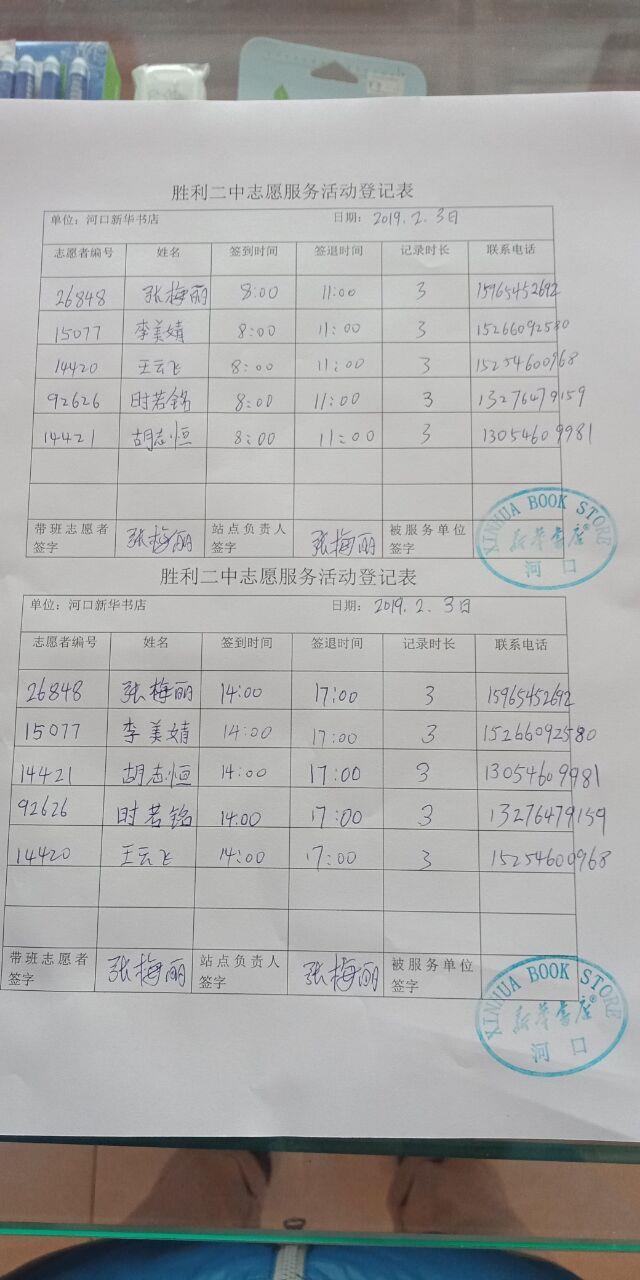 胜利二中志愿服务活动登记表
单位：河口新华书店 日期：2019.2.3日
志愿者编号 姓名 签到时间 签退时间 记录时长 联系电话
26848 张梅丽 8:00 11:00 3 15965452692
15077 李美婧 8:00 11:00 3 15266092580
14420 王云飞 8:00 11:00 3 15254600968
92626 时若铭 8:00 11:00 3 13276479159
14421 胡志恒 8:00 11:00 3 13054609981
带班志愿者签字 张梅丽 站点负责人签字 张梅丽 被服务单位签字
XINHUA BOOK STORE
新华书店®
河口
胜利二中志愿服务活动登记表
单位：河口新华书店 日期：2019.2.3日
志愿者编号 姓名 签到时间 签退时间 记录时长 联系电话
26848 张梅丽 14:00 17:00 3 15965452692
15077 李美婧 14:00 17:00 3 15266092580
14421 胡志恒 14:00 17:00 3 13054609981
92626 时若铭 14:00 17:00 3 13276479159
14420 王云飞 14:00 17:00 3 15254600968
带班志愿者签字 张梅丽 站点负责人签字 张梅丽 被服务单位签字
XINHUA BOOK STORE
新华书店®
河口